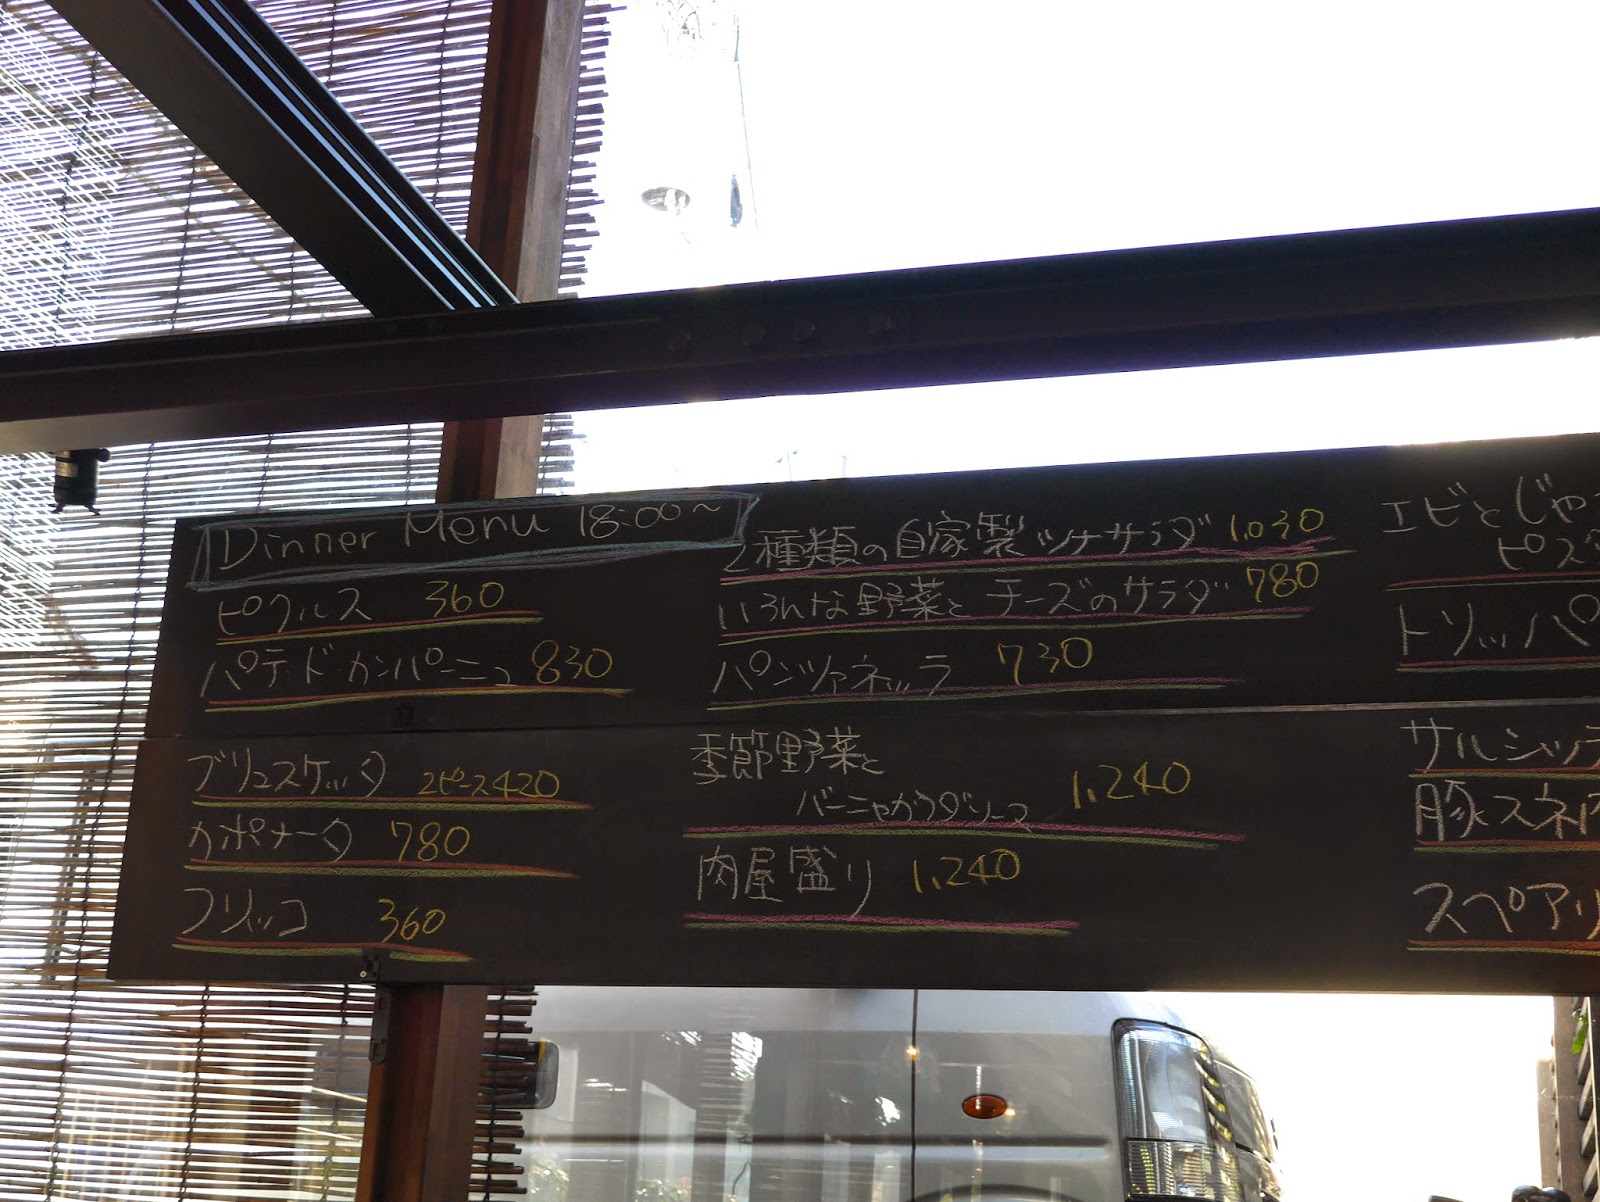 Dinner Menu 18:00~
ピクルス 360
パテ・ド・カンパーニュ 830
ブリュスケッタ 2ピース420
カポナータ 780
フリッコ 360
2種類の自家製ツナサラダ 1,030
いろんな野菜とチーズのサラダ 780
パンツァネッラ 730
季節野菜と
バーニャカウダソース 1,240
肉屋盛り 1,240
エビとじゃ
ピス
トリッパ
サルシッチ
豚スネ肉
スペアリ